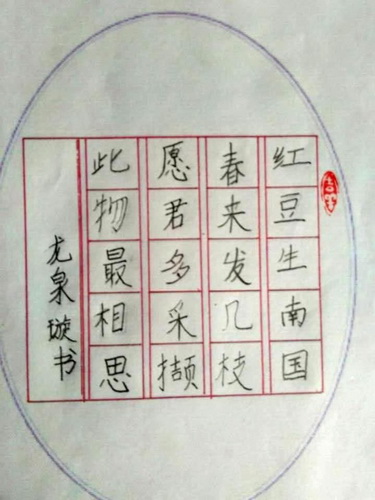 红豆生南国
春来发几枝
愿君多采撷
此物最相思
龙泉璇书